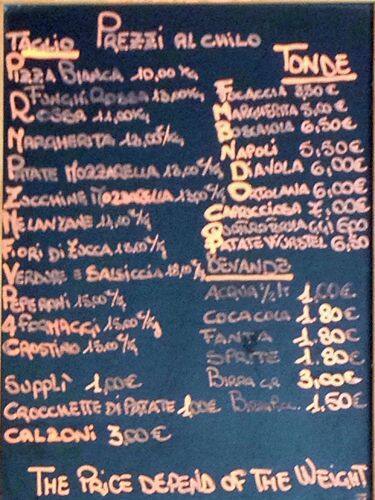 TAGLIO PREZZI AL CHILO
PIZZA BIANCA 10,00 Kg
FUNGHI ROSSA 13,00 Kg
ROSSA 11,00 Kg
MARGHERITA 13,00 €/Kg
PATATE MOZZARELLA 13,00 €/Kg
ZUCCHINE MOZZARELLA 13,00 €/Kg
MELANZANE 14,00 €/Kg
FIORI DI ZUCCA 18,00 €/Kg
VERDURE E SALSICCIA 18,00 €/Kg
PEPERONI 15,00 €/Kg
4 FORMAGGI 15,00 €/Kg
CROSTINO 15,00 €/Kg
SUPPLÌ 1,00€
CROCCHETTE DI PATATE 1,00€
CALZONI 3,00€
TONDE
FOCACCIA 3,50€
MARGHERITA 5,00€
BOSCAIOLA 6,50€
NAPOLI 5,50€
DIAVOLA 6,00€
ORTOLANA 6,00€
CAPRICCIOSA 7,00€
QUATTRO FORMAGGI 6,00
PATATE WURSTEL 6,50
BEVANDE
ACQUA 1/2 lt 1,00€
COCA COLA 1.80€
FANTA 1.80€
SPRITE 1.80€
BIRRA GR 3,00€
BIRRA 1.50€
THE PRICE DEPEND OF THE WEIGHT